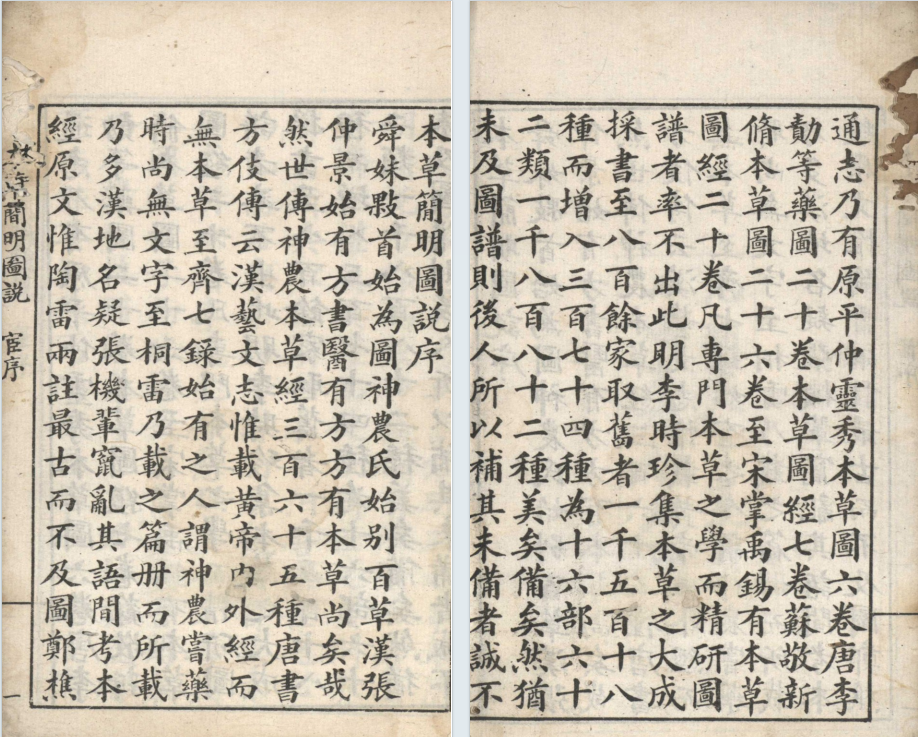 本草簡明圖說序
舜妹敤首始為圖神農氏始別百草漢張
仲景始有方書醫有方方有本草尚矣哉
然世傳神農本草經三百六十五種唐書
方伎傳云漢藝文志惟載黃帝内外經而
無本草至齊七錄始有之人謂神農嘗藥
時尚無文字至桐雷乃載之篇册而所載
乃多漢地名疑張機輩竄亂其語間考本
經原文惟陶雷兩註最古而不及圖鄭樵
簡明圖說 宦序 一
通志乃有原平仲靈秀本草圖六卷唐李
勣等藥圖二十卷本草圖經七卷蘇敬新
脩本草圖二十六卷至宋掌禹錫有本草
圖經二十卷凡專門本草之學而精研圖
譜者率不出此明李時珍集本草之大成
採書至八百餘家取舊者一千五百十八
種而增入三百七十四種為十六部六十
二類一千八百八十二種美矣備矣然猶
未及圖譜則後人所以補其未備者誠不